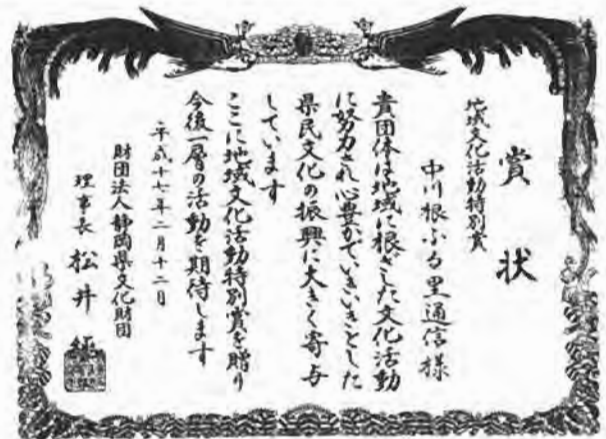 賞状
地域文化活動特別賞
中川根ふる里通信様
貴団体は地域に根ざした文化活動
に努力され心豊かでいきいきとした
県民文化の振興に大きく寄与
しています
ここに地域文化活動特別賞を贈り
今後一層の活動を期待します
平成十七年二月十二日
財団法人静岡県文化財団
理事長 松井